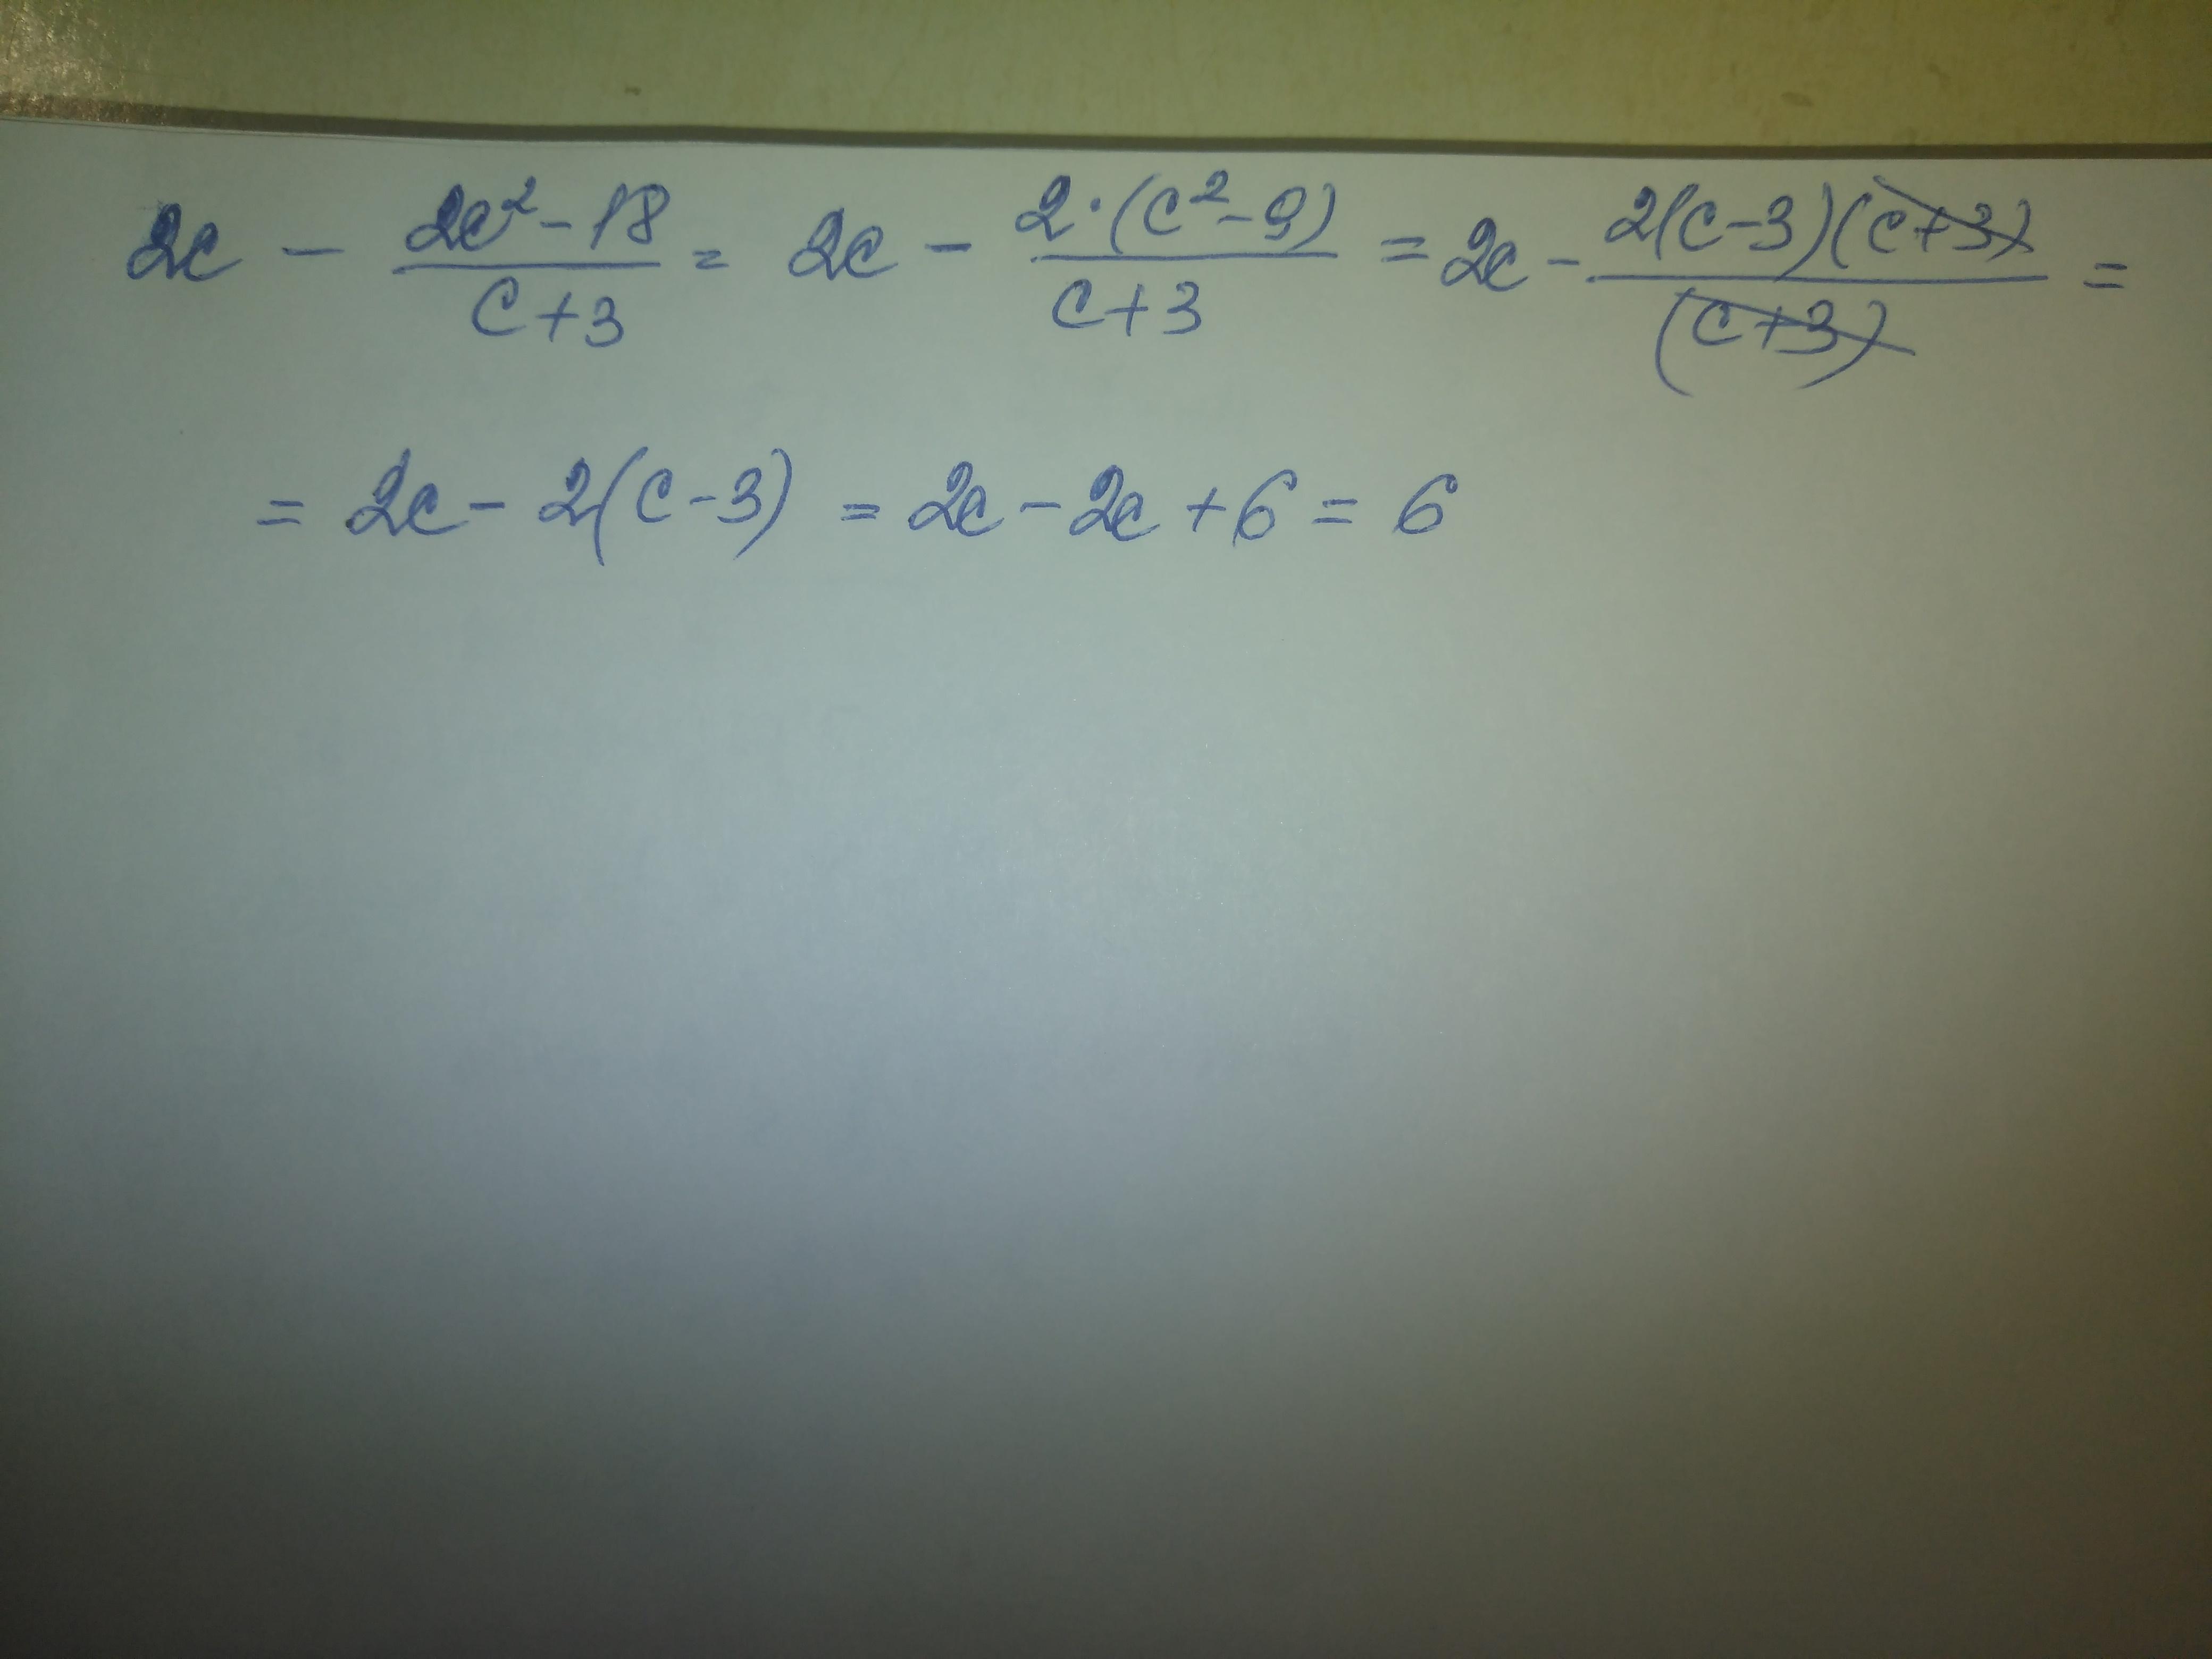 2c - (2c² - 18)/(c + 3) = 2c - (2·(c² - 9))/(c + 3) = 2c - (2(c - 3)(c + 3))/((c + 3)) =
= 2c - 2(c - 3) = 2c - 2c + 6 = 6